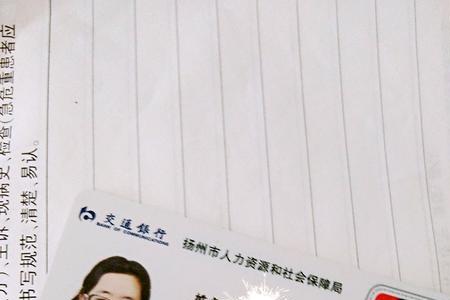 )、主诉、现病史、检查(急危重患者应
书写规范、清楚、易认。
交通銀行
BANK OF COMMUNICATIONS
扬州市人力资源和社会保障局